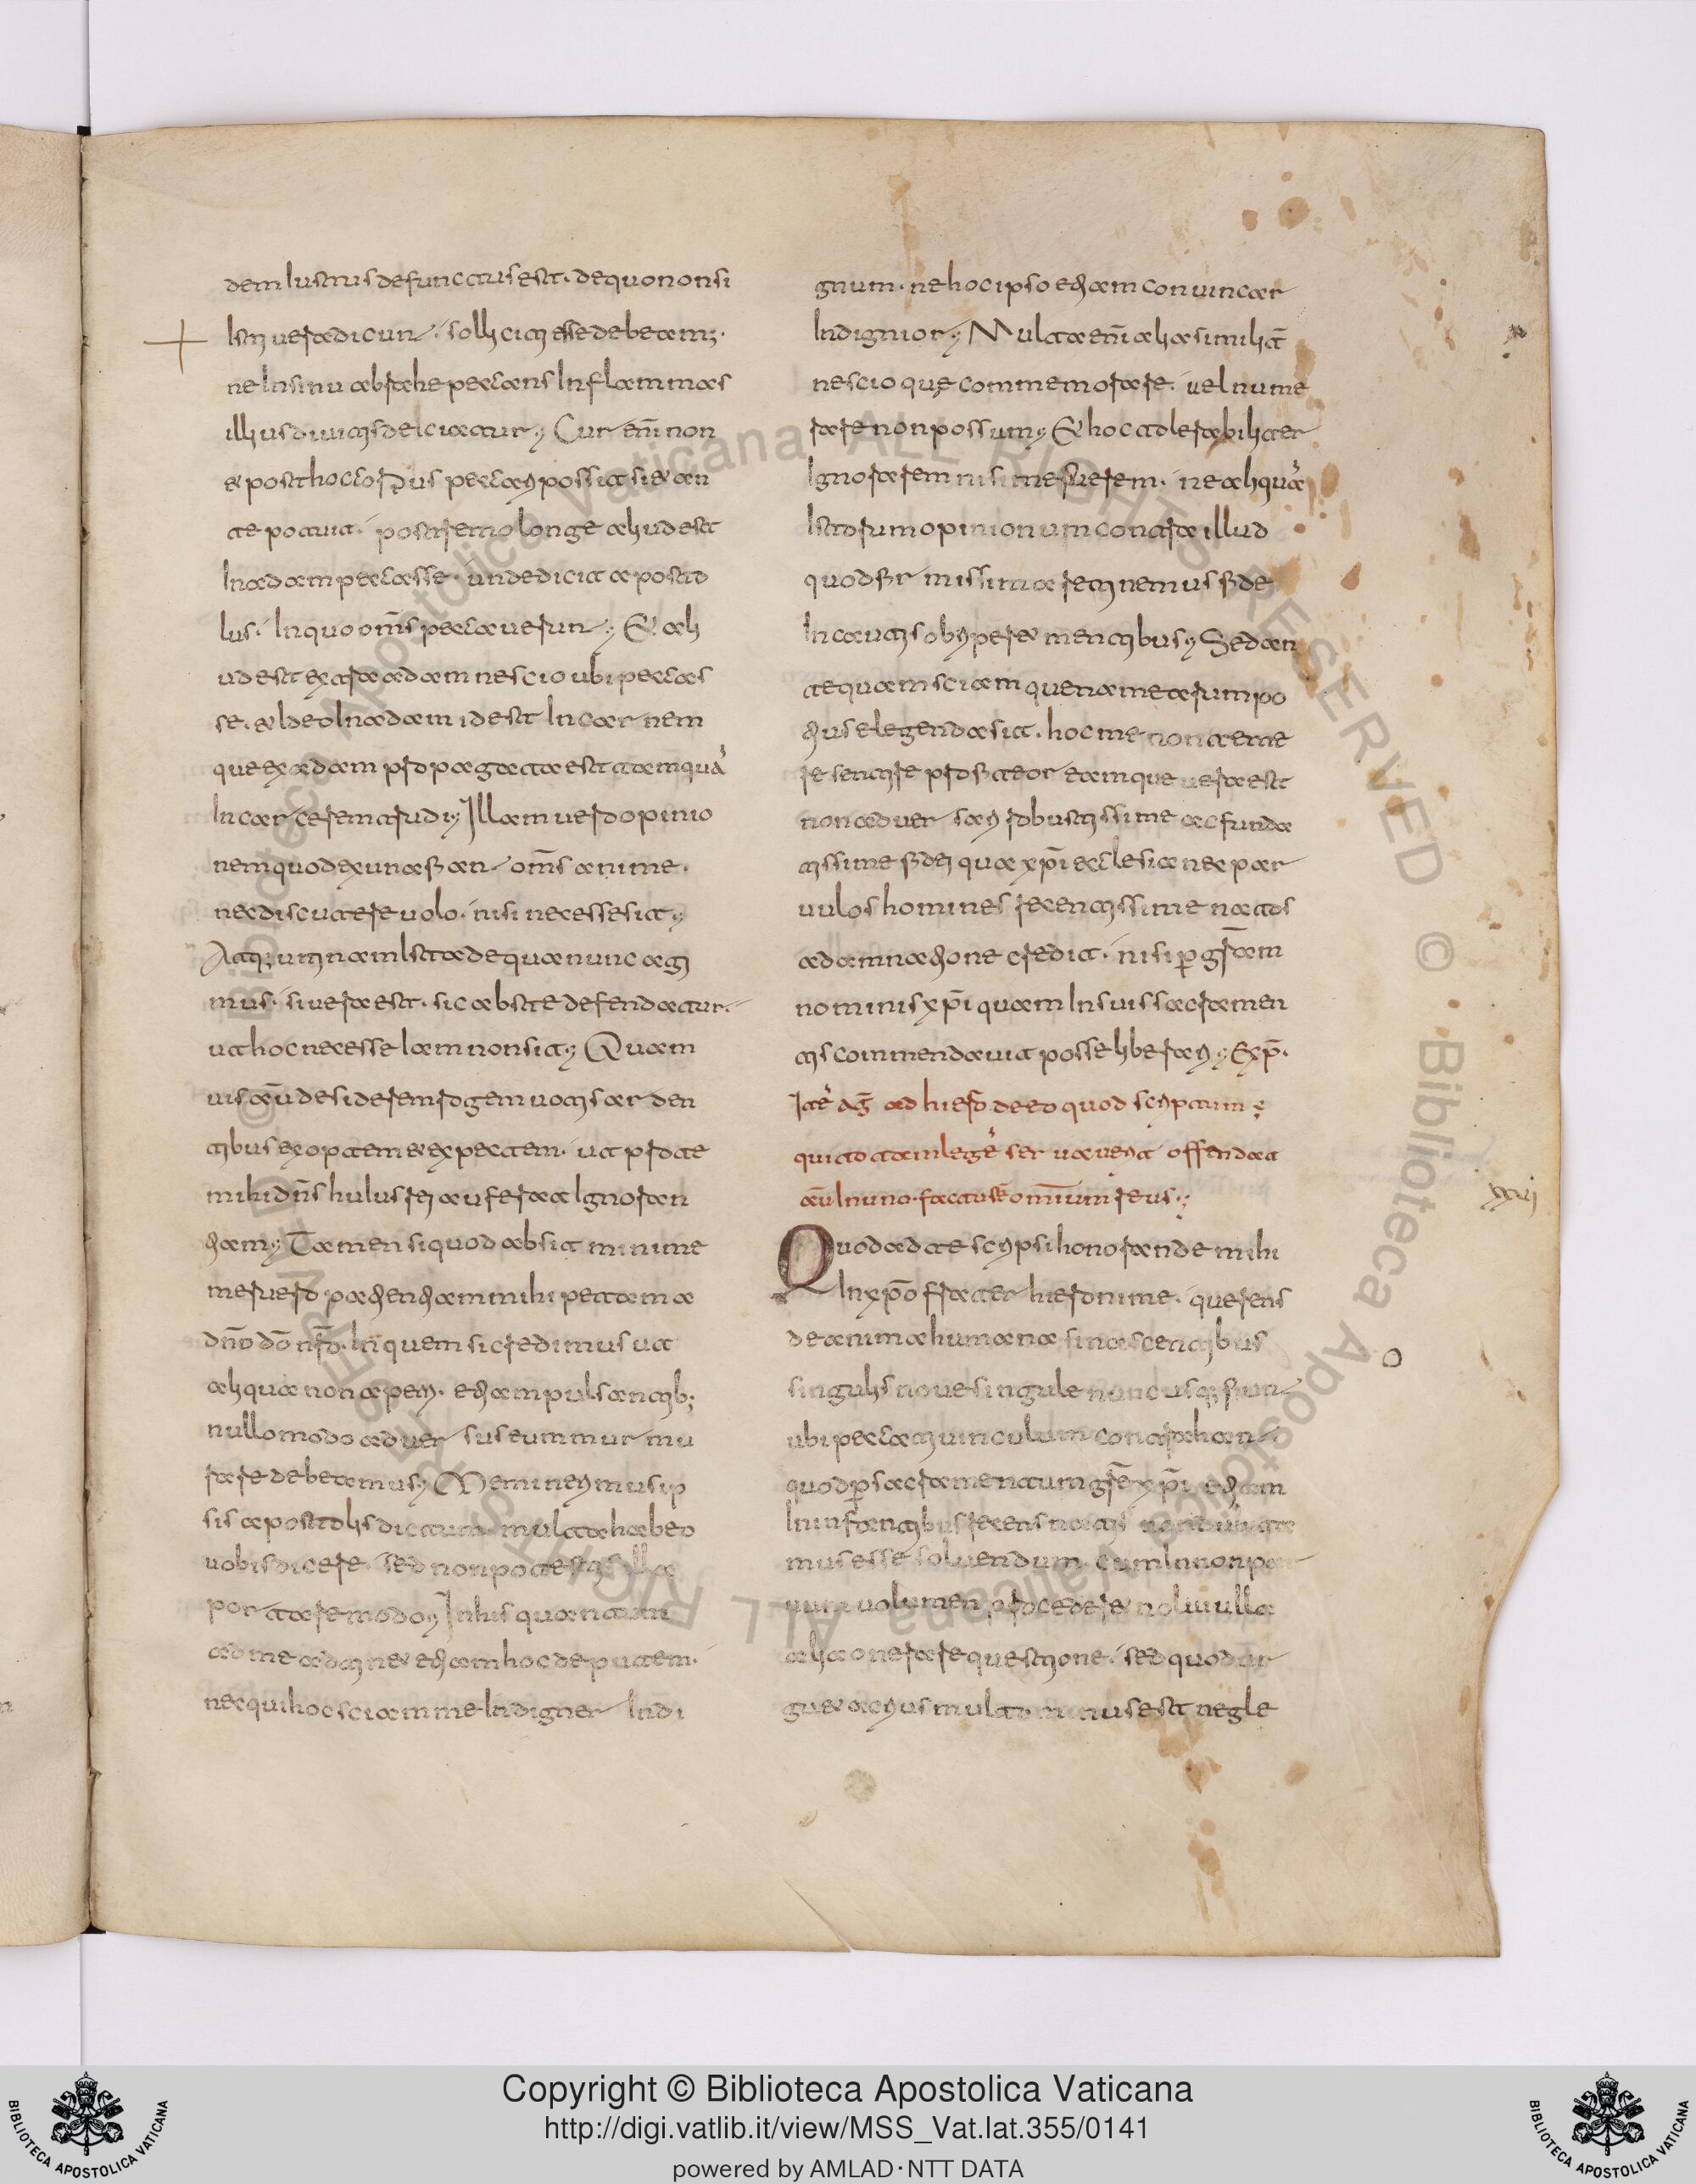 dem iustus defunctus est. de quo non si
isti uera dicunt. solliciti esse debeam;.
ne in sinu abrahe peccans in flammas
illius diuitis deiciatur. Cur eni̅ non
et post hoc corpus peccari possit si et an
te potuit. postremo longe aliud est
in adam peccasse. unde dicit aposto
lus. in quo om̅s peccauerunt. Et ali
ud est extra adam nescio ubi peccas
se. et ideo in adam id est in carnem
que ex adam propagata est tamqua̅
in carcerem trudi. Illam uero opinio
nem quod ex una fiant om̅s anime.
nec discutere uolo. nisi necesse sit.
Atq; utinam ista de qua nunc agi
mus. si uera est. sic abs te defendatur.
ut hoc necesse iam non sit. Quam
uis au̅ desiderem rogem uotis arden
tibus exoptem et expectem. ut pro te
mihi dn̅s huius rei auferat ignoran
tiam. Tamen si quod absit minime
meruero patientiam mihi petam a
dn̅o do̅ nr̅o. in quem sic credimus ut
aliqua non aperiri. etiam pulsantib;
nullo modo aduersus eum murmu
rare debeamus. Meminerimus ip
sis apostolis dictum. multa habeo
uobis dicere. sed non potestis illa
portare modo. In his quantum
ad me adtinet etiam hoc deputem.
nec qui hoc sciam me indigner indi
gnum. ne hoc ipso etiam conuincar
indignior. Multa eni̅ alia similit̅
nescio que commemorare. uel nume
rare non possum. Et hoc tolerabiliter
ignorarem nisi metuerem. ne aliqua̅
istorum opinionum contra illud
quod firmissima retinemus fide
incautis obriperet mentibus. Sed an
tequam sciam quenam earum po
tius eligenda sit. hoc me non teme
re sentire profiteor eam que uera est
non aduersari robustissime ac funda
tissime fidei qua xp̅i ecclesia nec par
uulos homines recentissime natos
a damnatione credit. nisi p gr̅am
nominis xp̅i quam in suis sacramen
tis commendauit posse liberari. Exp̅.
Ite̅ ag̅ ad hiero̅ de eo quod scriptum ÷
qui totam lege̅ seruauerit offendat
au̅ in uno. factus e̅ omnium reus.
xxvi
Quod ad te scripsi honorande mihi
in xp̅o frater hieronime. querens
de anima humana si nascentibus
singulis noue singule nunc usq; fiunt
ubi peccati uinculum contrahant
quod p sacramentum gr̅e xp̅i etiam
in infantibus recens natis non dubita
mus esse soluendum. cum in non par
uum uolumen procederet nolui ulla
alia onerare questione. sed quod ur
get acrius multo minus est negle
Copyright © Biblioteca Apostolica Vaticana
http://digi.vatlib.it/view/MSS_Vat.lat.355/0141
powered by AMLAD·NTT DATA
BIBLIOTECA APOSTOLICA VATICANA
BIBLIOTECA APOSTOLICA VATICANA